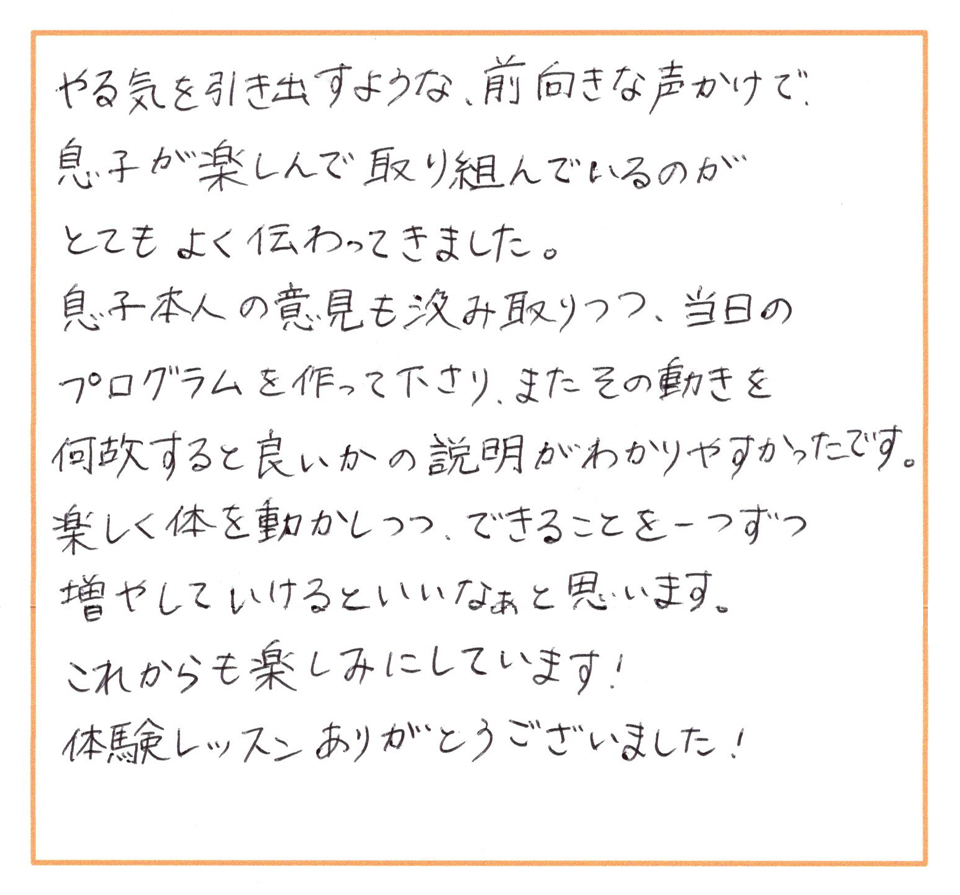 やる気を引き出すような、前向きな声かけで、
息子が楽しんで取り組んでいるのが
とてもよく伝わってきました。
息子本人の意見も汲み取りつつ、当日の
プログラムを作って下さり、またその動きを
何故すると良いかの説明がわかりやすかったです。
楽しく体を動かしつつ、できることを一つずつ
増やしていけるといいなぁと思います。
これからも楽しみにしています！
体験レッスンありがとうございました！